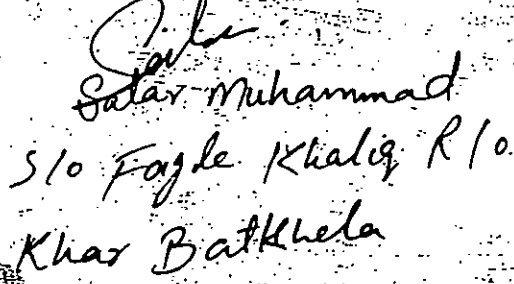 Salar Muhammad
S/o Fazle Khaliq R/o.
Khar Batkhela